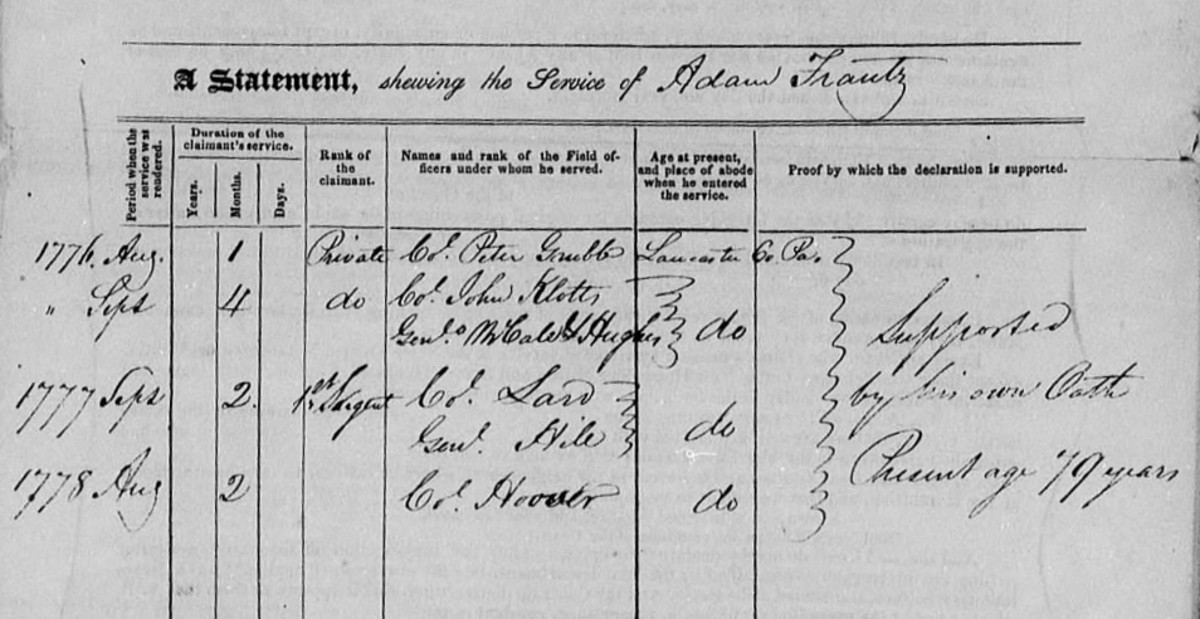 A Statement, shewing the Service of Adam Frantz
Period when the service was rendered.
Duration of the claimant's service.
Years.
Months.
Days.
Rank of the claimant.
Names and rank of the Field officers under whom he served.
Age at present, and place of abode when he entered the service.
Proof by which the declaration is supported.
1776. Aug. 1 Private Col. Peter Grubb Lancaster Co. Pa.
" Sept 4 do Col. John Klotts
Genls McCale & Hughes do Supported
1777 Sept 2 1st Sargent Col. Laro by his own Oath
Genl. Hile do
1778 Aug 2 Col. Hoover do Present age 79 years